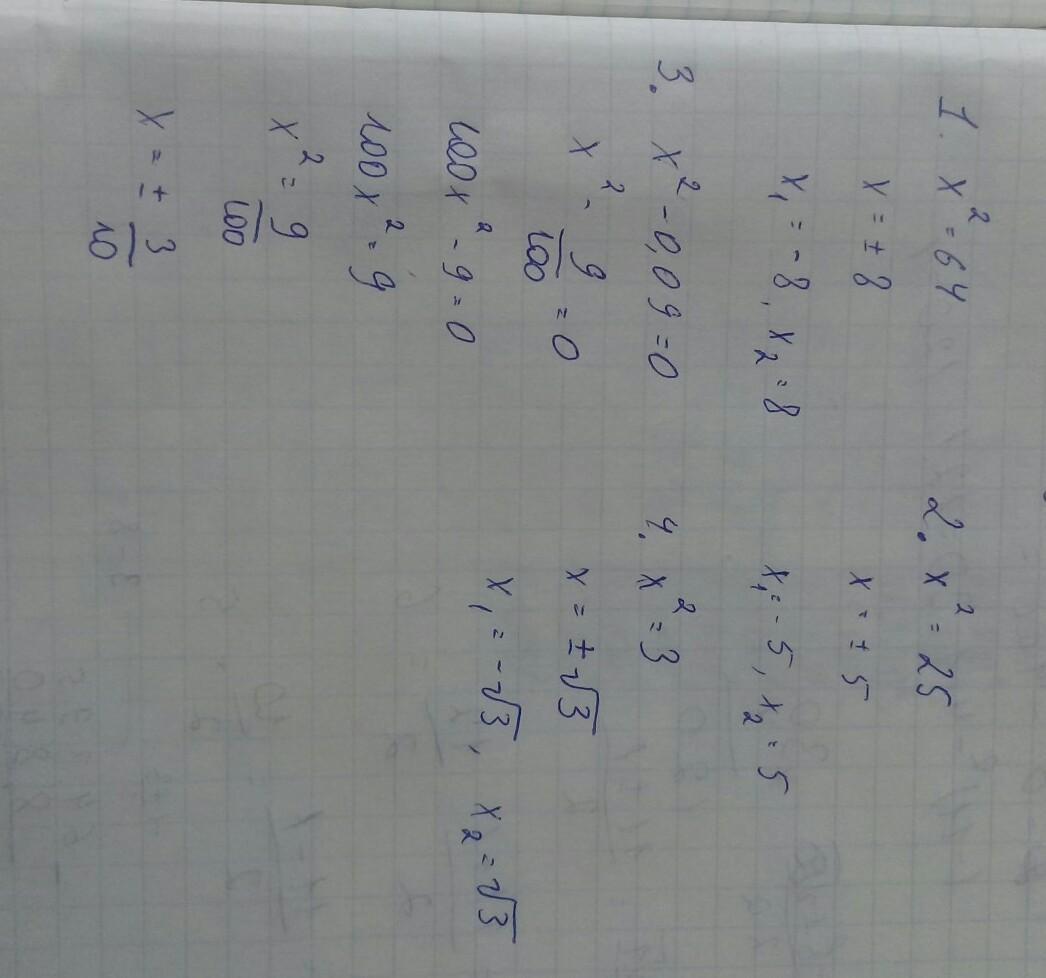 1. x² = 64
x = ± 8
x₁ = - 8, x₂ = 8
2. x² = 25
x = ± 5
x₁ = - 5, x₂ = 5
3. x² - 0,09 = 0
x² - 9/100 = 0
100x² - 9 = 0
100x² = 9
x² = 9/100
x = ± 3/10
4. x² = 3
x = ± √3
x₁ = - √3, x₂ = √3